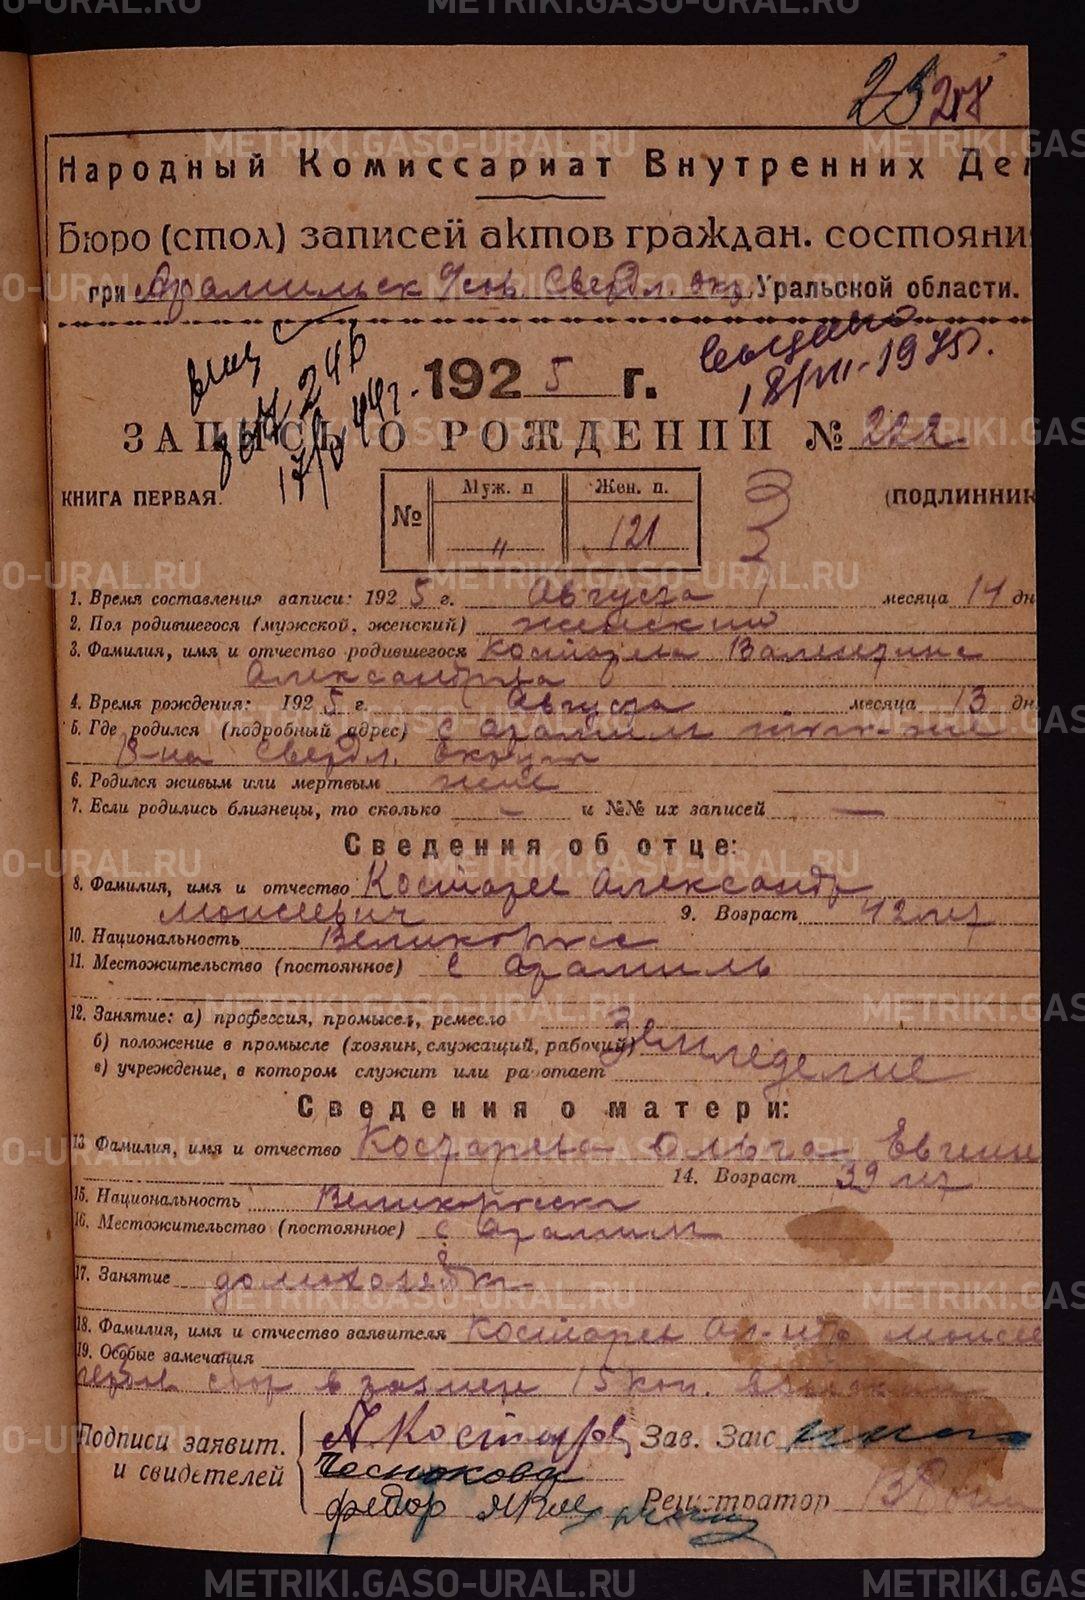 23 208
Народный Комиссариат Внутренних Дел
Бюро (стол) записей актов граждан. состояни
при Арамильск Свердл. окр. Уральской области.
выдано
18/VII-1975г.
246
17/ 44г.
1925 г.
ЗАПИСЬ О РОЖДЕНИИ № 222
КНИГА ПЕРВАЯ.
(ПОДЛИННИК
№ Муж. п Жен. п.
" 121
1. Время составления записи: 1925 г. Августа месяца 14 дн
2. Пол родившегося (мужской, женский) женский
3. Фамилия, имя и отчество родившегося Костарева Валентина
Александровна
4. Время рождения: 1925 г. Августа месяца 13 дн
5. Где родился (подробный адрес) с Арамиль
р-на Свердл. округа
6. Родился живым или мертвым
7. Если родились близнецы, то сколько — и №№ их записей —
Сведения об отце:
8. Фамилия, имя и отчество Костарев Александр
Моисеевич 9. Возраст 42 лет
10. Национальность Великорусс
11. Местожительство (постоянное) с Арамиль
12. Занятие: а) профессия, промысел, ремесло
б) положение в промысле (хозяин, служащий, рабочий) Земледелие
в) учреждение, в котором служит или работает
Сведения о матери:
13. Фамилия, имя и отчество Костарева Ольга Евгени
14. Возраст 39 лет
15. Национальность Великорусска
16. Местожительство (постоянное) с Арамиль
17. Занятие домохозяйка
18. Фамилия, имя и отчество заявителя Костарев Ал-др Моисее
19. Особые замечания
гербов сбор в размере 15 коп.
Подписи заявит. и свидетелей
А Костарев
Чеснокова
Федор
Зав. Загс
Регистратор
METRIKI.GASO-URAL.RU